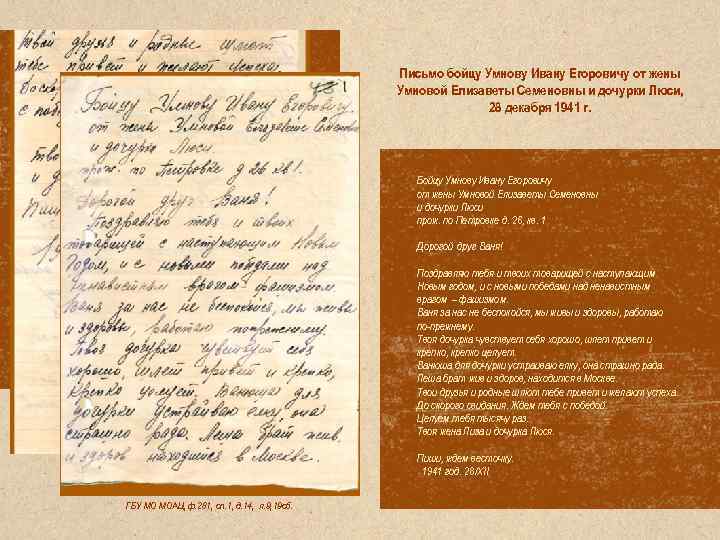 твой друзья и родные шлют
тебе привет и желают успеха
481
Бойцу Умнову Ивану Егоровичу
от жены Умновой Елизаветы Семеновны
и дочурки Люси
прож. по Петровке д 26 кв 1.
Дорогой друг Ваня!
Поздравляю тебя и твоих
товарищей с наступающим Новым
Годом, и с новыми победами над
ненавистным врагом фашизмом
Ваня за нас не беспокойся, мы живы
и здоровы, работаю попрежнему.
Твоя дочурка чувствует себя
хорошо, шлет привет и крепко,
крепко целует. Ванюша для
дочурки устраиваю елку она
страшно рада. Леша брат жив
и здоров находится в Москве.
ГБУ МО МОАЦ, ф.281, оп.1, д.14, л.9,19об.
Письмо бойцу Умнову Ивану Егоровичу от жены
Умновой Елизаветы Семеновны и дочурки Люси,
28 декабря 1941 г.
Бойцу Умнову Ивану Егоровичу
от жены Умновой Елизаветы Семеновны
и дочурки Люси
прож. по Петровке д. 26, кв. 1
Дорогой друг Ваня!
Поздравляю тебя и твоих товарищей с наступающим
Новым годом, и с новыми победами над ненавистным
врагом – фашизмом.
Ваня за нас не беспокойся, мы живы и здоровы, работаю
по-прежнему.
Твоя дочурка чувствует себя хорошо, шлет привет и
крепко, крепко целует.
Ванюша для дочурки устраиваю елку, она страшно рада.
Леша брат жив и здоров, находится в Москве.
Твои друзья и родные шлют тебе привет и желают успеха.
До скорого свидания. Ждем тебя с победой.
Целуем тебя тысячу раз.
Твоя жена Лиза и дочурка Люся.
Пиши, ждем весточку.
1941 год. 28/XII